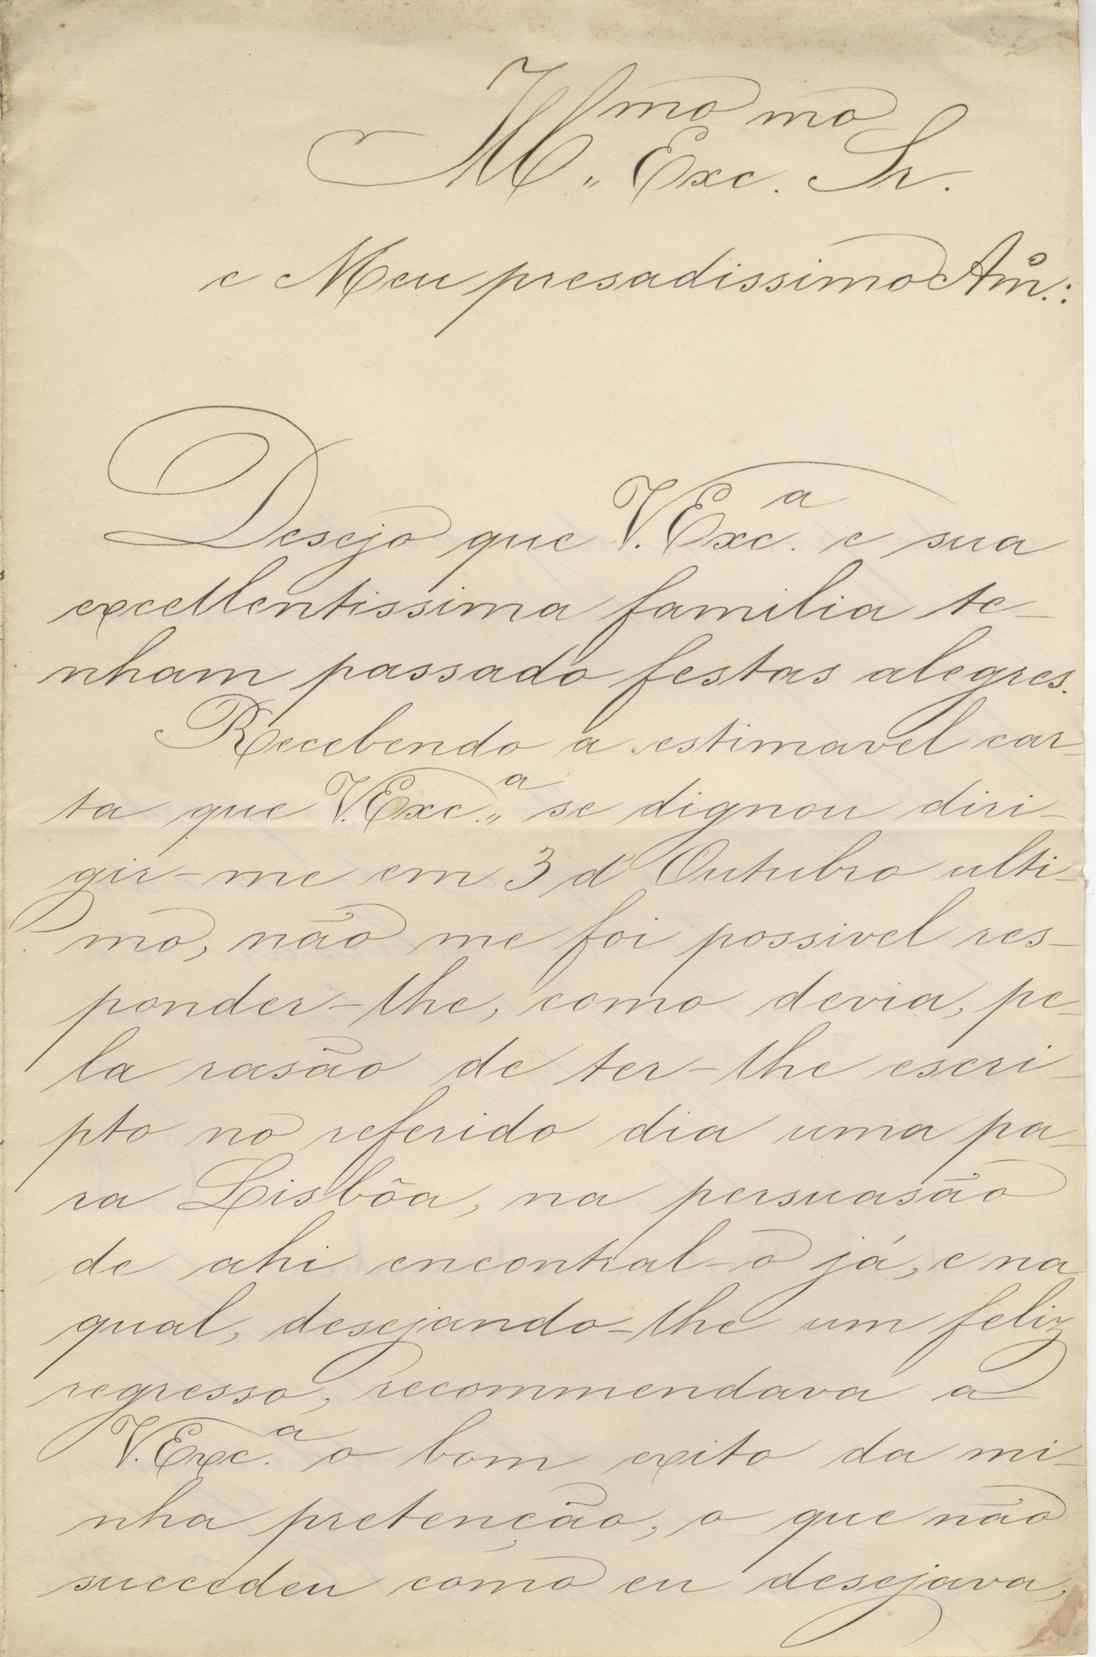 Ill.mo Exc.mo Sr.
e Meu presadissimo Am.º:
Desejo que V. Exc.a e sua
excellentissima familia te-
nham passado festas alegres.
Recebendo a estimavel car-
ta que V. Exc.a se dignou diri-
gir-me em 3 d'Outubro ulti-
mo, não me foi possivel res-
ponder-lhe, como devia, pe-
la rasão de ter-lhe escri-
pto no referido dia uma pa-
ra Lisbôa, na persuasão
de ahi encontral-o já, e na
qual, desejando-lhe um feliz
regresso, recommendava a
V. Exc.a o bom exito da mi-
nha pretenção, o que não
succedeu como eu desejava,